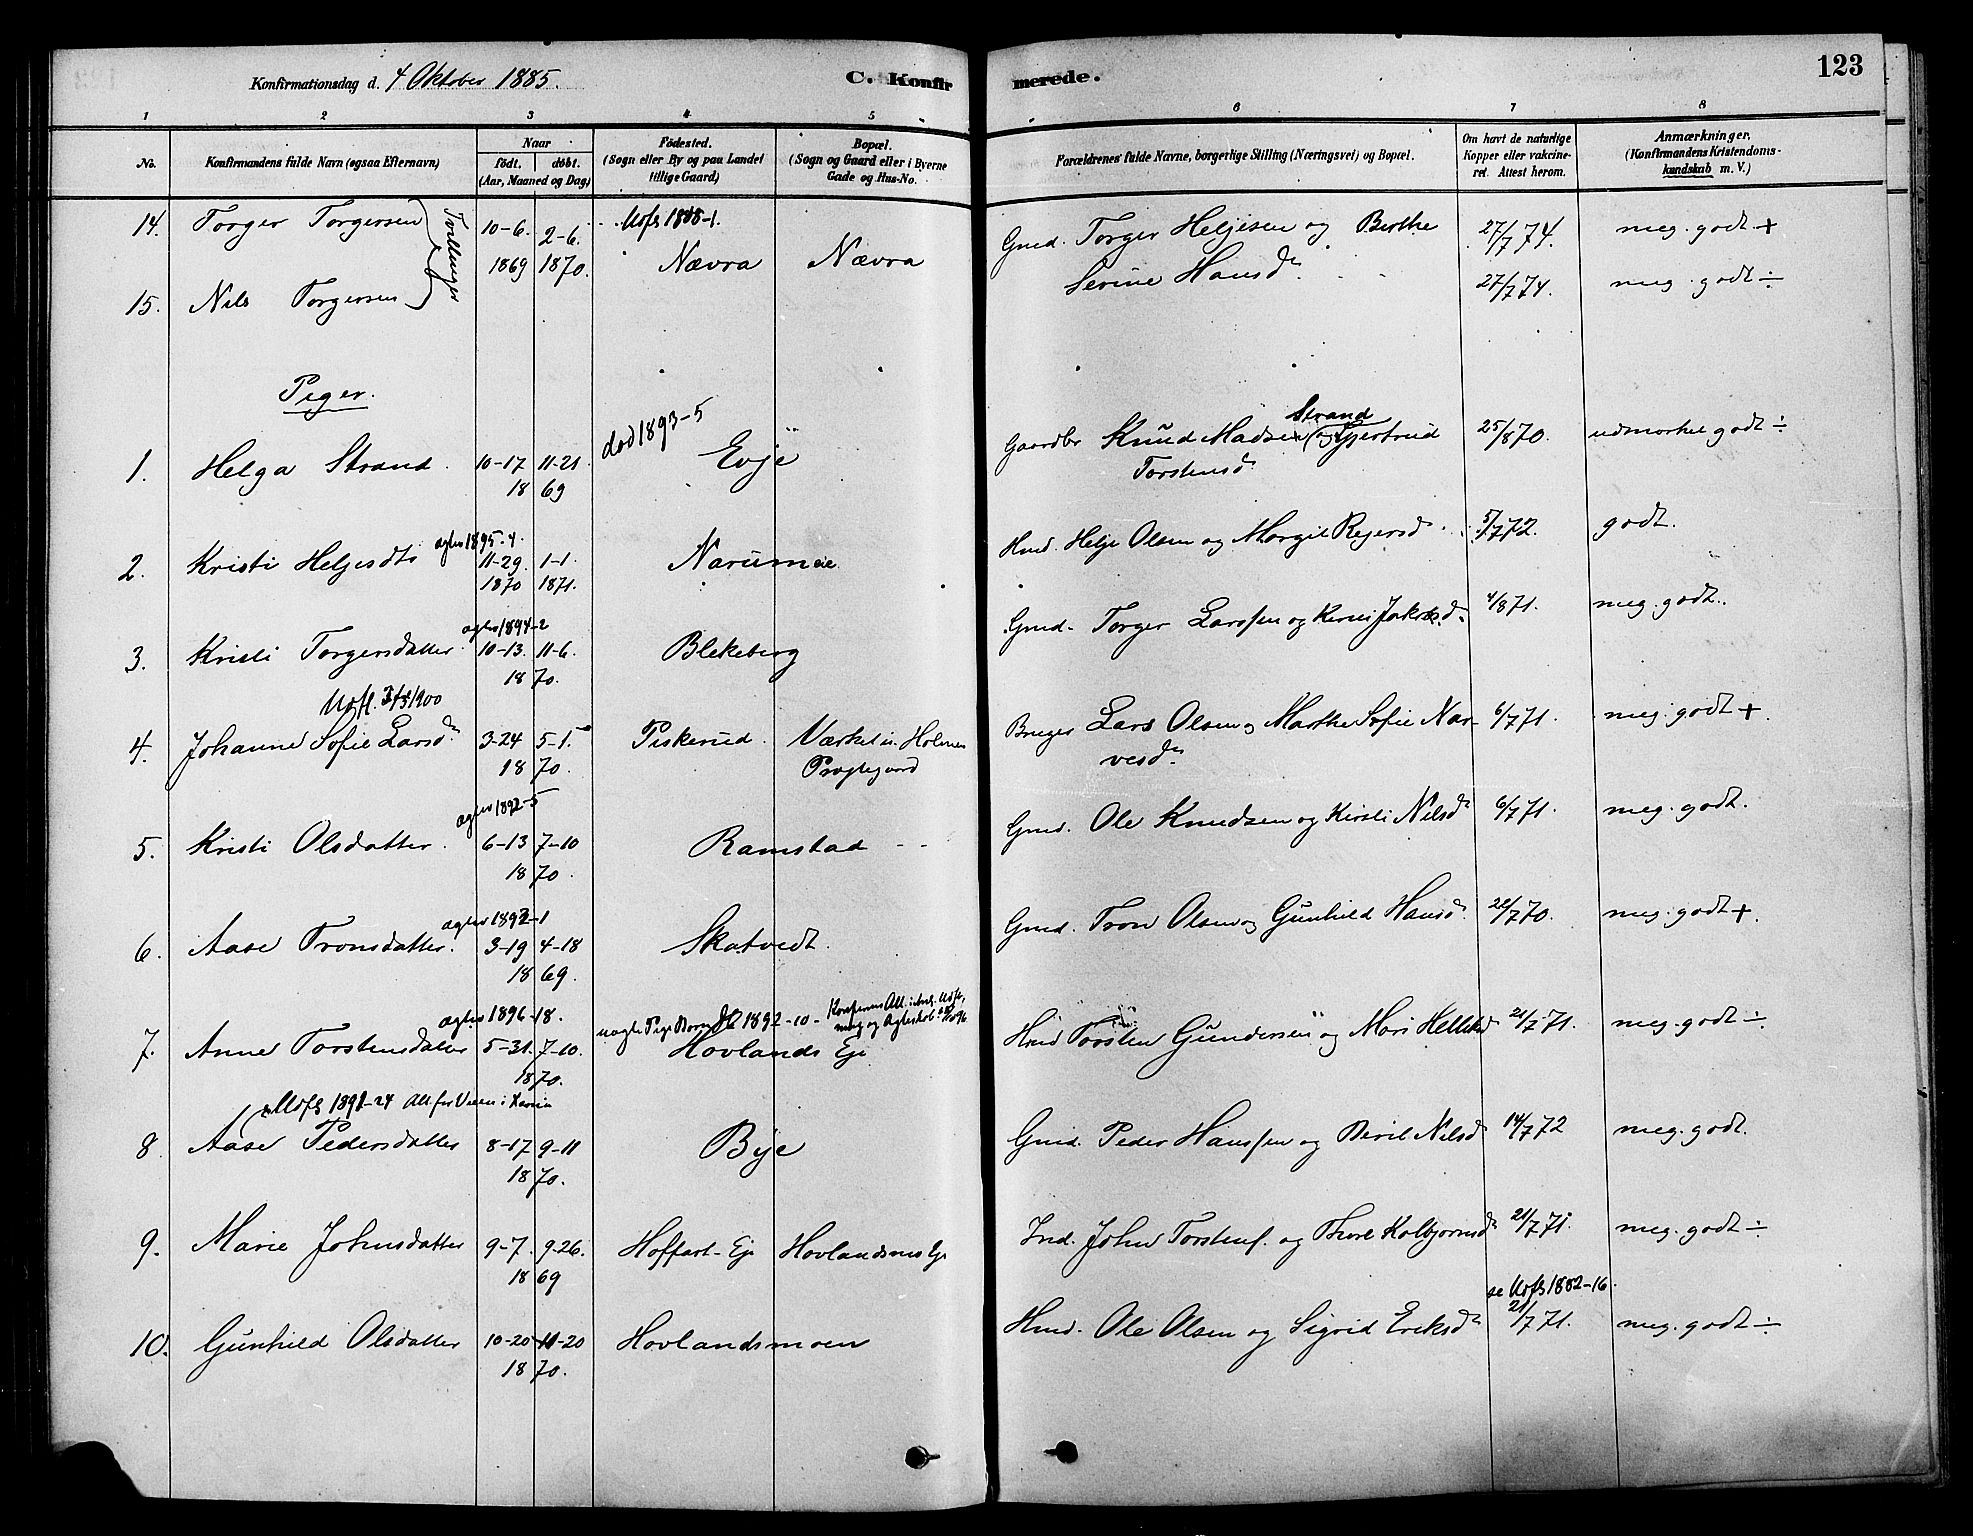 Konfirmationsdag d. 4 Oktober 1885.
C. Konfirmerede.
123
1 2 3 4 5 6 7 8
No.
Konfirmandens fulde Navn (ogsaa Efternavn)
Naar
födt. döbt.
(Aar, Maaned og Dag)
Födested.
(Sogn eller By og paa Landet
tillige Gaard)
Bopæl.
(Sogn og Gaard eller i Byerne
Gade og Hus-No.
Forældrenes fulde Navne, borgerlige Stilling (Næringsvei) og Bopæl.
Om havt de naturlige
Kopper eller vakcine-
ret. Attest herom.
Anmærkninger.
(Konfirmandens Kristendoms-
kundskab m. V.)
14. Torger Torgersen Tvillinger 10-6. 2-6. Uofs 1888-1. Gmd. Torger Helgesen og Berthe 27/7 74. meg. godt +
1869 1870. Nævra Nævra Serine Hansdr.
15. Nils Torgersen 27/7 74. meg. godt ÷
Piger.
død 1893-5
1. Helga Strand. 10-17 11-21. Evje Gaardbr Knud Madsen Strand og Gjertrud 25/8 70. udmærket godt ÷
18 69 Torstensd
agtev 1895-4.
2. Kristi Helgesdtr 11-29. 1-1. Narumeie. Hmd. Helge Olsen og Margit Reiersd 5/7 72. godt.
1870 1871.
agtev 1894-2
3. Kristi Torgersdatter. 10-13. 11-6. Blekeberg Gmd. Torger Larssen og 4/8 71. meg. godt.
18 70.
4. Johanne Sofie Larsdr 3-24 5-1. Piskerud. Værket u. Holmen Bruger Lars Olsen og Marthe Sofie Nar- 6/7 71. meg. godt +.
18 70. Prægtegaard vesdr.
agtev 1892-5
5. Kristi Olsdatter. 6-13 7-10 Ramstad Gmd. Ole Knudsen og Kirsti Nilsd 6/7 71. meg. godt.
18 70.
6. Aase Tronsdatter. 3-19 4-18 Skatvedt. Gmd. Tron Olsen og Gunhild Hansd. /7 70. meg. godt +.
18 69.
agtev 1896-18.
7. Anne Torstensdatter 5-31. 7-10. Hovlands Eje Hmd Torsten Gundersen og Mari 21/7 71. meg. godt ÷
1870.
Uofs 1891-24 Att. for
8. Aase Pedersdatter 8-17 9-11 Bye Gmd. Peder Hanssen og Beril Nilsd 14/7 72 meg. godt.
18 70.
9. Marie Johnsdatter 9-7. 9-26. Hoffart-Eje Hovlandsmoseje Ind. John Torstens. og Thore Kolbjørnsd 21/7 71. meg. godt ÷
18 69
se Uofs 1882-16.
10. Gunhild Olsdatter 10-20 11-20 Hovlandsmoen Hmd. Ole Olsen og Sigrid Eriksd 21/7 71. meg. godt ÷
18 70.